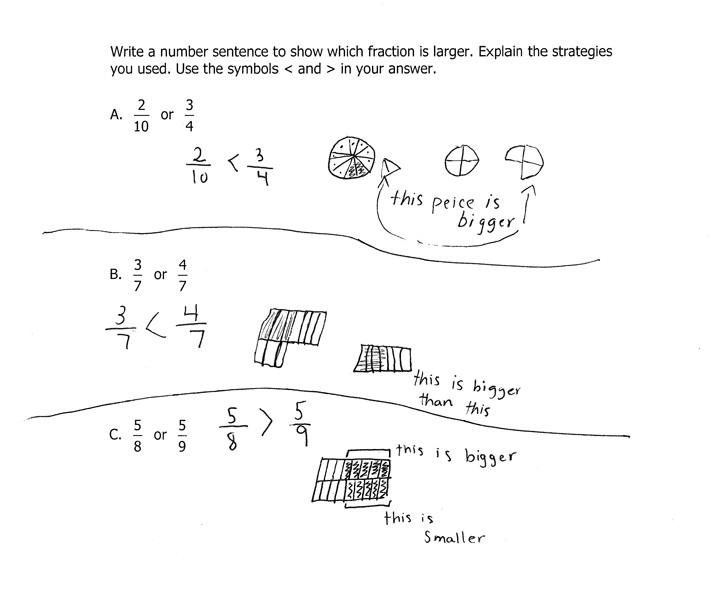 Write a number sentence to show which fraction is larger. Explain the strategies
you used. Use the symbols < and > in your answer.
A. 2/10 or 3/4
2/10 < 3/4
this peice is
bigger
B. 3/7 or 4/7
3/7 < 4/7
this is bigger
than this
C. 5/8 or 5/9
5/8 > 5/9
this is bigger
this is
Smaller